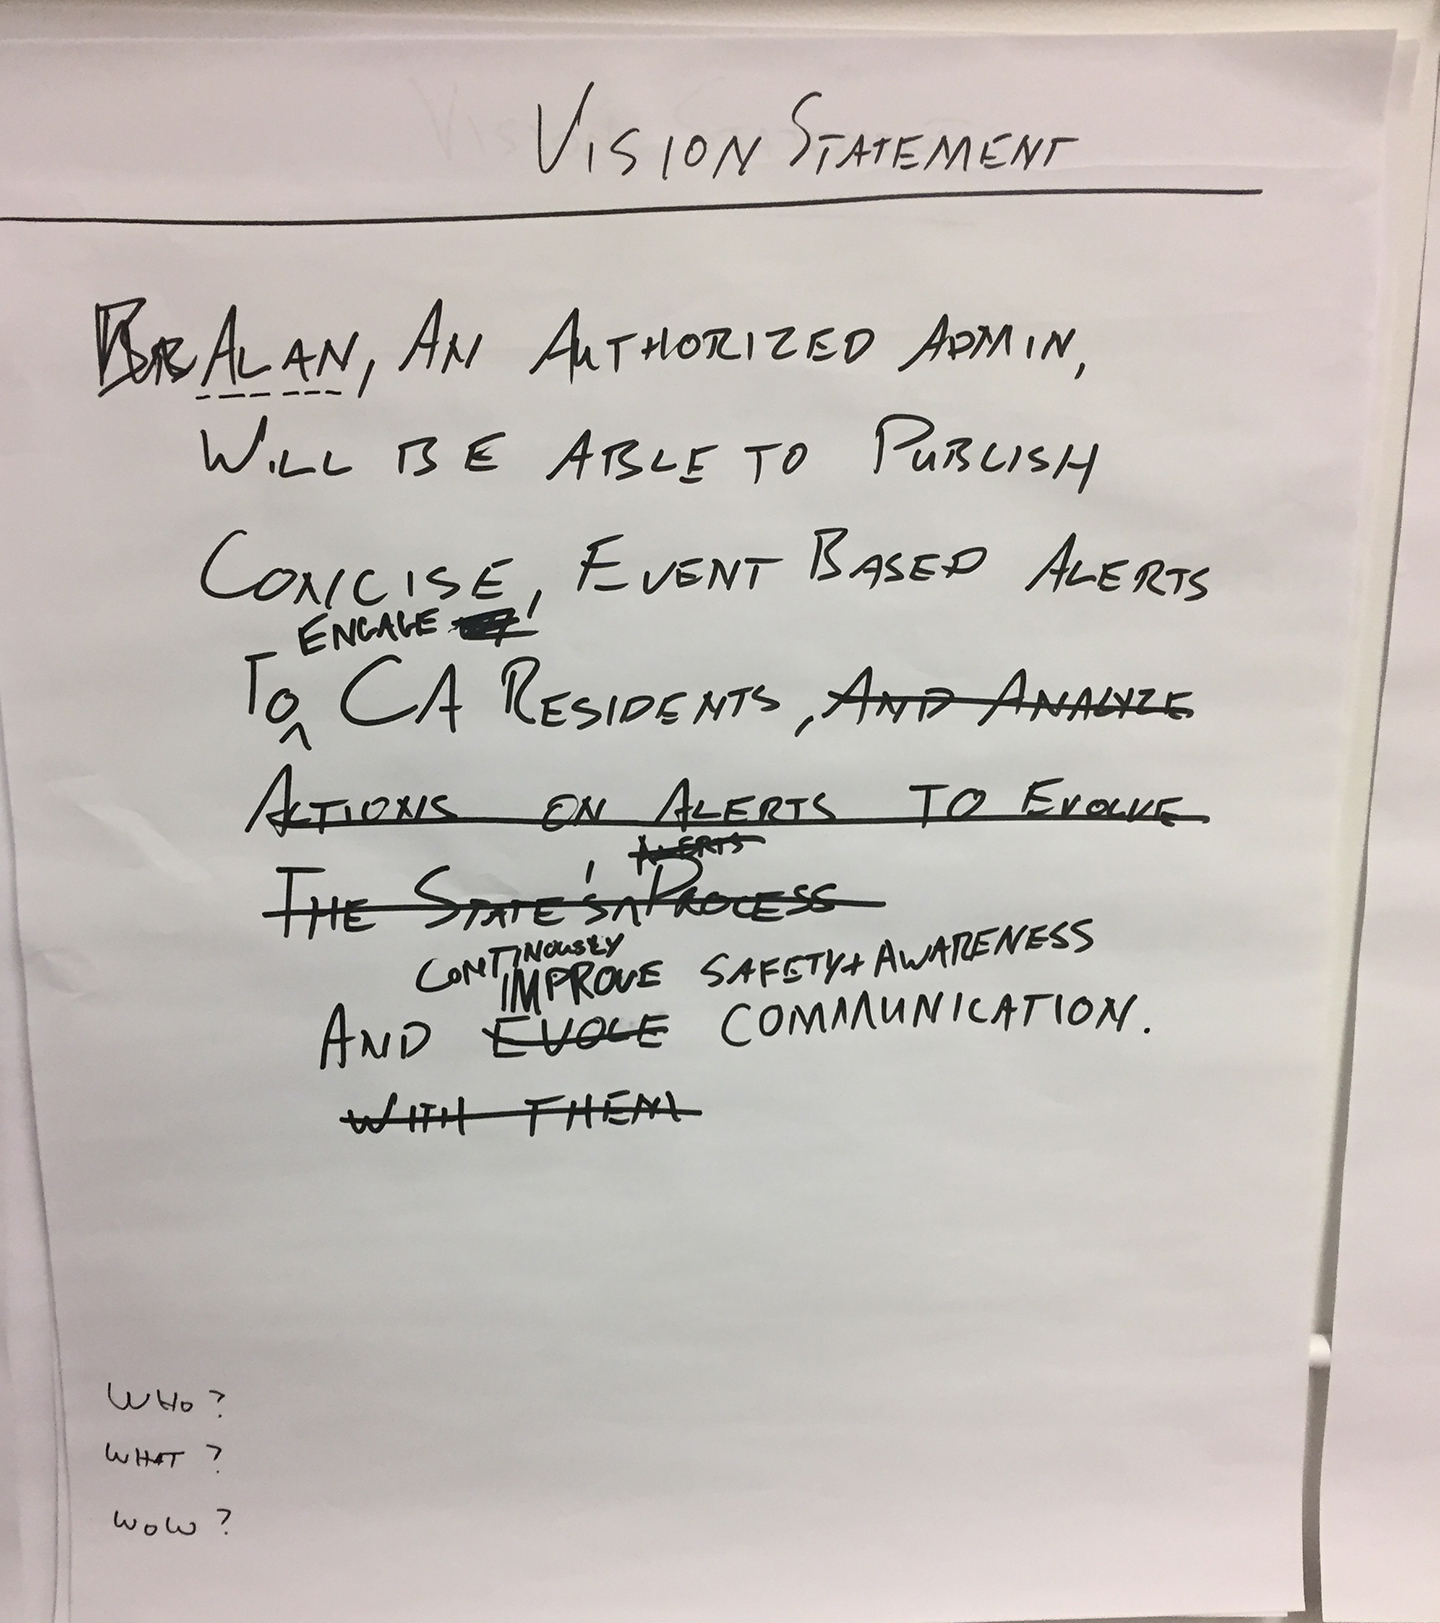 VISION STATEMENT
ALAN, AN AUTHORIZED ADMIN,
WILL BE ABLE TO PUBLISH
CONCISE, EVENT BASED ALERTS
ENGAGE
TO CA RESIDENTS, AND ANALYZE
ACTIONS ON ALERTS TO EVOLVE
ALERTS
THE STATE'S PROCESS
CONTINOUSLY
IMPROVE SAFETY + AWARENESS
AND EVOLE COMMUNICATION.
WITH THEM
WHO?
WHAT?
WOW?